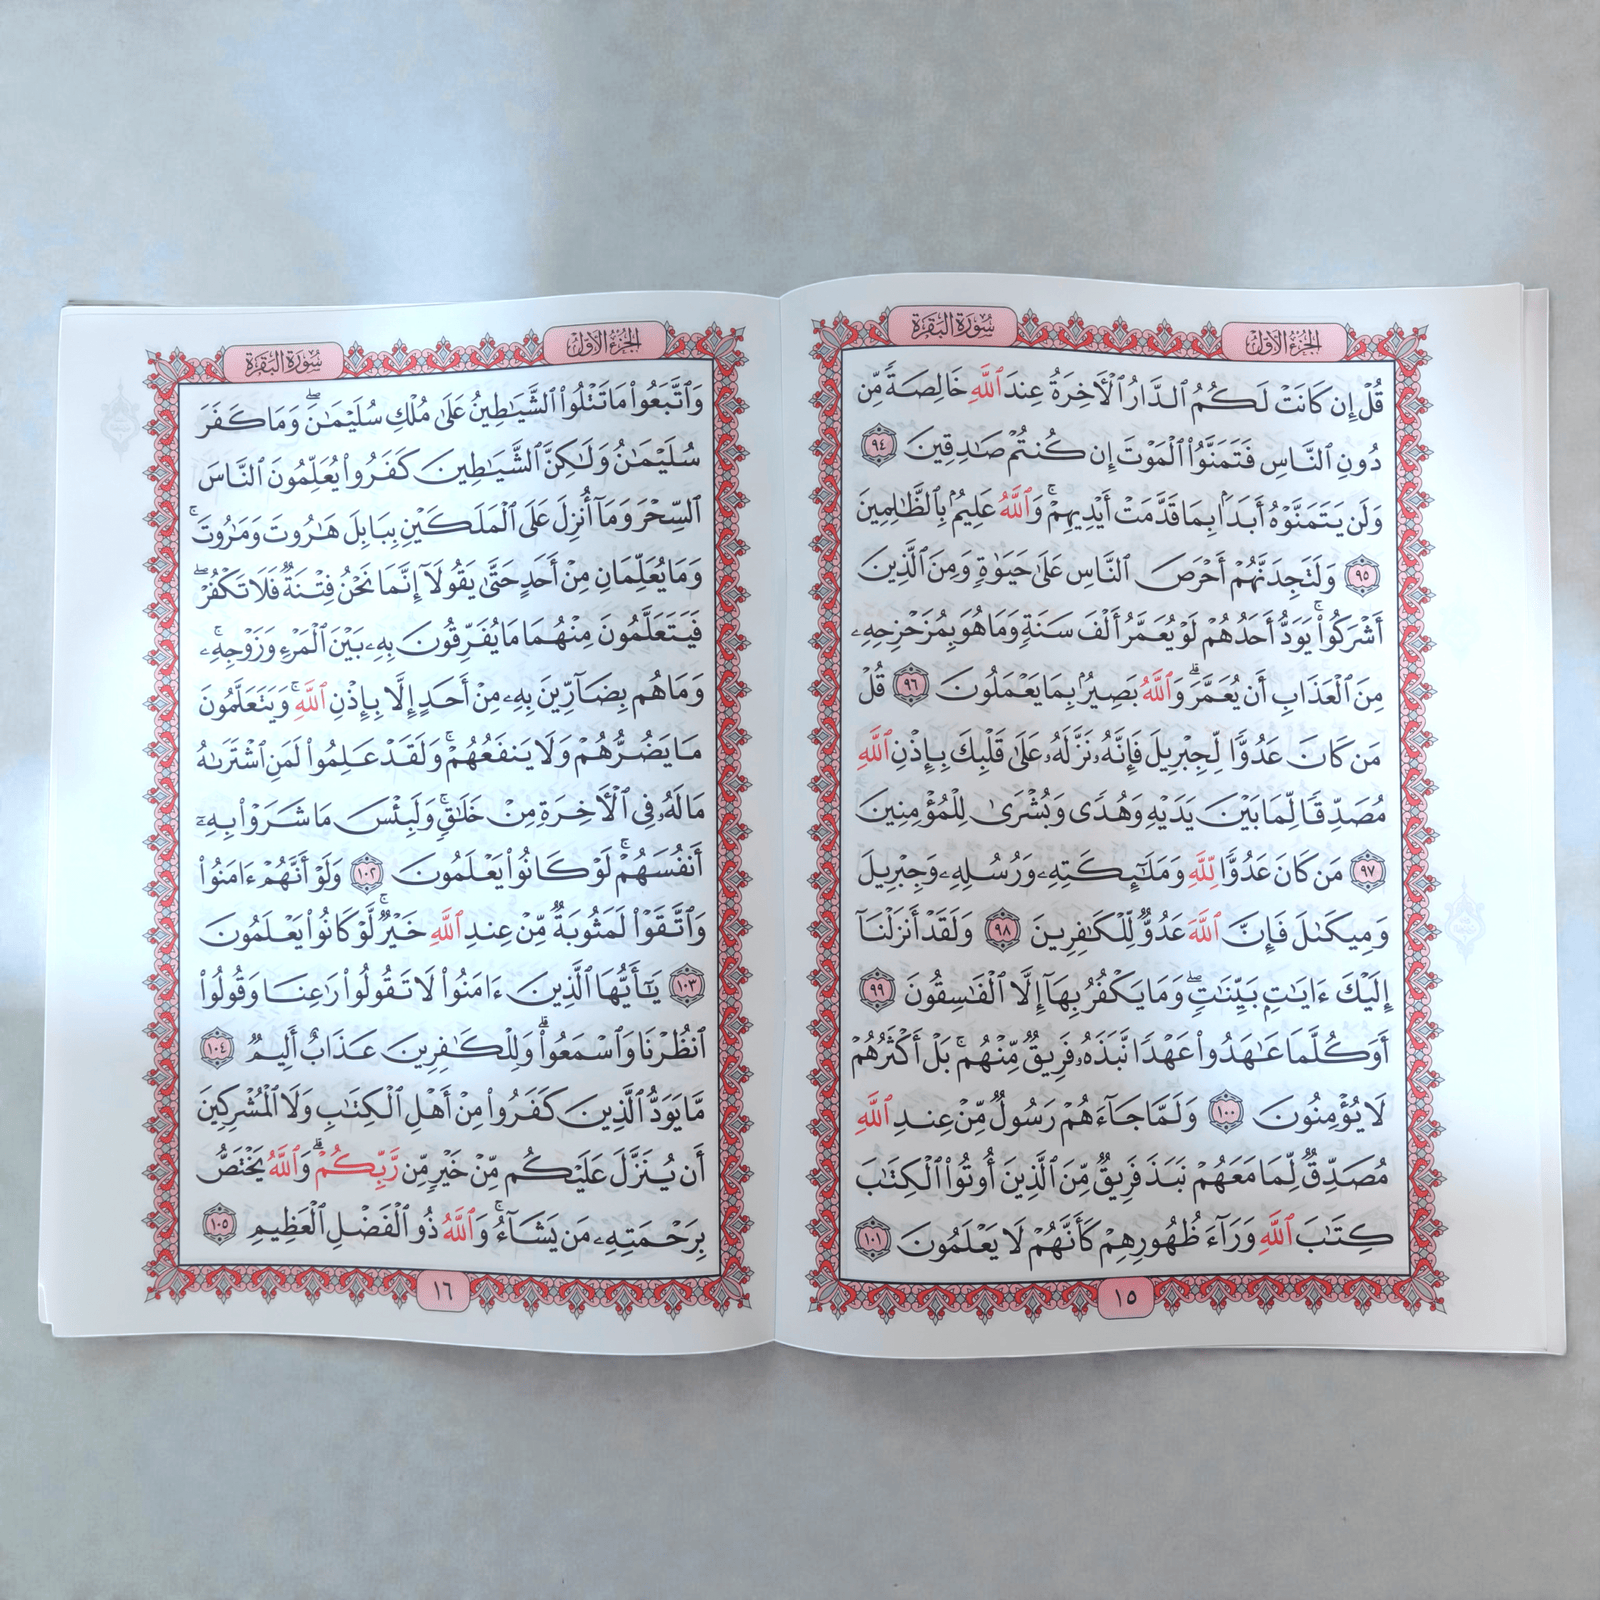 الجزء الأول
سورة البقرة
قُلْ إِن كَانَتْ لَكُمُ ٱلدَّارُ ٱلْأَخِرَةُ عِندَ ٱللَّهِ خَالِصَةً مِّن
دُونِ ٱلنَّاسِ فَتَمَنَّوُا۟ ٱلْمَوْتَ إِن كُنتُمْ صَـٰدِقِينَ ٩٤
وَلَن يَتَمَنَّوْهُ أَبَدًۢا بِمَا قَدَّمَتْ أَيْدِيهِمْ ۗ وَٱللَّهُ عَلِيمٌۢ بِٱلظَّـٰلِمِينَ
٩٥ وَلَتَجِدَنَّهُمْ أَحْرَصَ ٱلنَّاسِ عَلَىٰ حَيَوٰةٍ وَمِنَ ٱلَّذِينَ
أَشْرَكُوا۟ ۚ يَوَدُّ أَحَدُهُمْ لَوْ يُعَمَّرُ أَلْفَ سَنَةٍ وَمَا هُوَ بِمُزَحْزِحِهِۦ
مِنَ ٱلْعَذَابِ أَن يُعَمَّرَ ۗ وَٱللَّهُ بَصِيرٌۢ بِمَا يَعْمَلُونَ ٩٦ قُلْ
مَن كَانَ عَدُوًّا لِّجِبْرِيلَ فَإِنَّهُۥ نَزَّلَهُۥ عَلَىٰ قَلْبِكَ بِإِذْنِ ٱللَّهِ
مُصَدِّقًا لِّمَا بَيْنَ يَدَيْهِ وَهُدًى وَبُشْرَىٰ لِلْمُؤْمِنِينَ
٩٧ مَن كَانَ عَدُوًّا لِّلَّهِ وَمَلَـٰٓئِكَتِهِۦ وَرُسُلِهِۦ وَجِبْرِيلَ
وَمِيكَىٰلَ فَإِنَّ ٱللَّهَ عَدُوٌّ لِّلْكَـٰفِرِينَ ٩٨ وَلَقَدْ أَنزَلْنَآ
إِلَيْكَ ءَايَـٰتٍۭ بَيِّنَـٰتٍ ۖ وَمَا يَكْفُرُ بِهَآ إِلَّا ٱلْفَـٰسِقُونَ ٩٩
أَوَكُلَّمَا عَـٰهَدُوا۟ عَهْدًا نَّبَذَهُۥ فَرِيقٌ مِّنْهُم ۚ بَلْ أَكْثَرُهُمْ
لَا يُؤْمِنُونَ ١٠٠ وَلَمَّا جَآءَهُمْ رَسُولٌ مِّنْ عِندِ ٱللَّهِ
مُصَدِّقٌ لِّمَا مَعَهُمْ نَبَذَ فَرِيقٌ مِّنَ ٱلَّذِينَ أُوتُوا۟ ٱلْكِتَـٰبَ
كِتَـٰبَ ٱللَّهِ وَرَآءَ ظُهُورِهِمْ كَأَنَّهُمْ لَا يَعْلَمُونَ ١٠١
١٥
الجزء الأول
سورة البقرة
وَٱتَّبَعُوا۟ مَا تَتْلُوا۟ ٱلشَّيَـٰطِينُ عَلَىٰ مُلْكِ سُلَيْمَـٰنَ ۖ وَمَا كَفَرَ
سُلَيْمَـٰنُ وَلَـٰكِنَّ ٱلشَّيَـٰطِينَ كَفَرُوا۟ يُعَلِّمُونَ ٱلنَّاسَ
ٱلسِّحْرَ وَمَآ أُنزِلَ عَلَى ٱلْمَلَكَيْنِ بِبَابِلَ هَـٰرُوتَ وَمَـٰرُوتَ ۚ
وَمَا يُعَلِّمَانِ مِنْ أَحَدٍ حَتَّىٰ يَقُولَآ إِنَّمَا نَحْنُ فِتْنَةٌ فَلَا تَكْفُرْ ۖ
فَيَتَعَلَّمُونَ مِنْهُمَا مَا يُفَرِّقُونَ بِهِۦ بَيْنَ ٱلْمَرْءِ وَزَوْجِهِۦ ۚ
وَمَا هُم بِضَآرِّينَ بِهِۦ مِنْ أَحَدٍ إِلَّا بِإِذْنِ ٱللَّهِ ۚ وَيَتَعَلَّمُونَ
مَا يَضُرُّهُمْ وَلَا يَنفَعُهُمْ ۚ وَلَقَدْ عَلِمُوا۟ لَمَنِ ٱشْتَرَىٰهُ
مَا لَهُۥ فِى ٱلْأَخِرَةِ مِنْ خَلَـٰقٍ ۚ وَلَبِئْسَ مَا شَرَوْا۟ بِهِۦٓ
أَنفُسَهُمْ ۚ لَوْ كَانُوا۟ يَعْلَمُونَ ١٠٢ وَلَوْ أَنَّهُمْ ءَامَنُوا۟
وَٱتَّقَوْا۟ لَمَثُوبَةٌ مِّنْ عِندِ ٱللَّهِ خَيْرٌ ۚ لَّوْ كَانُوا۟ يَعْلَمُونَ
١٠٣ يَـٰٓأَيُّهَا ٱلَّذِينَ ءَامَنُوا۟ لَا تَقُولُوا۟ رَٰعِنَا وَقُولُوا۟
ٱنظُرْنَا وَٱسْمَعُوا۟ ۗ وَلِلْكَـٰفِرِينَ عَذَابٌ أَلِيمٌ ١٠٤
مَّا يَوَدُّ ٱلَّذِينَ كَفَرُوا۟ مِنْ أَهْلِ ٱلْكِتَـٰبِ وَلَا ٱلْمُشْرِكِينَ
أَن يُنَزَّلَ عَلَيْكُم مِّنْ خَيْرٍ مِّن رَّبِّكُمْ ۗ وَٱللَّهُ يَخْتَصُّ
بِرَحْمَتِهِۦ مَن يَشَآءُ ۚ وَٱللَّهُ ذُو ٱلْفَضْلِ ٱلْعَظِيمِ ١٠٥
١٦